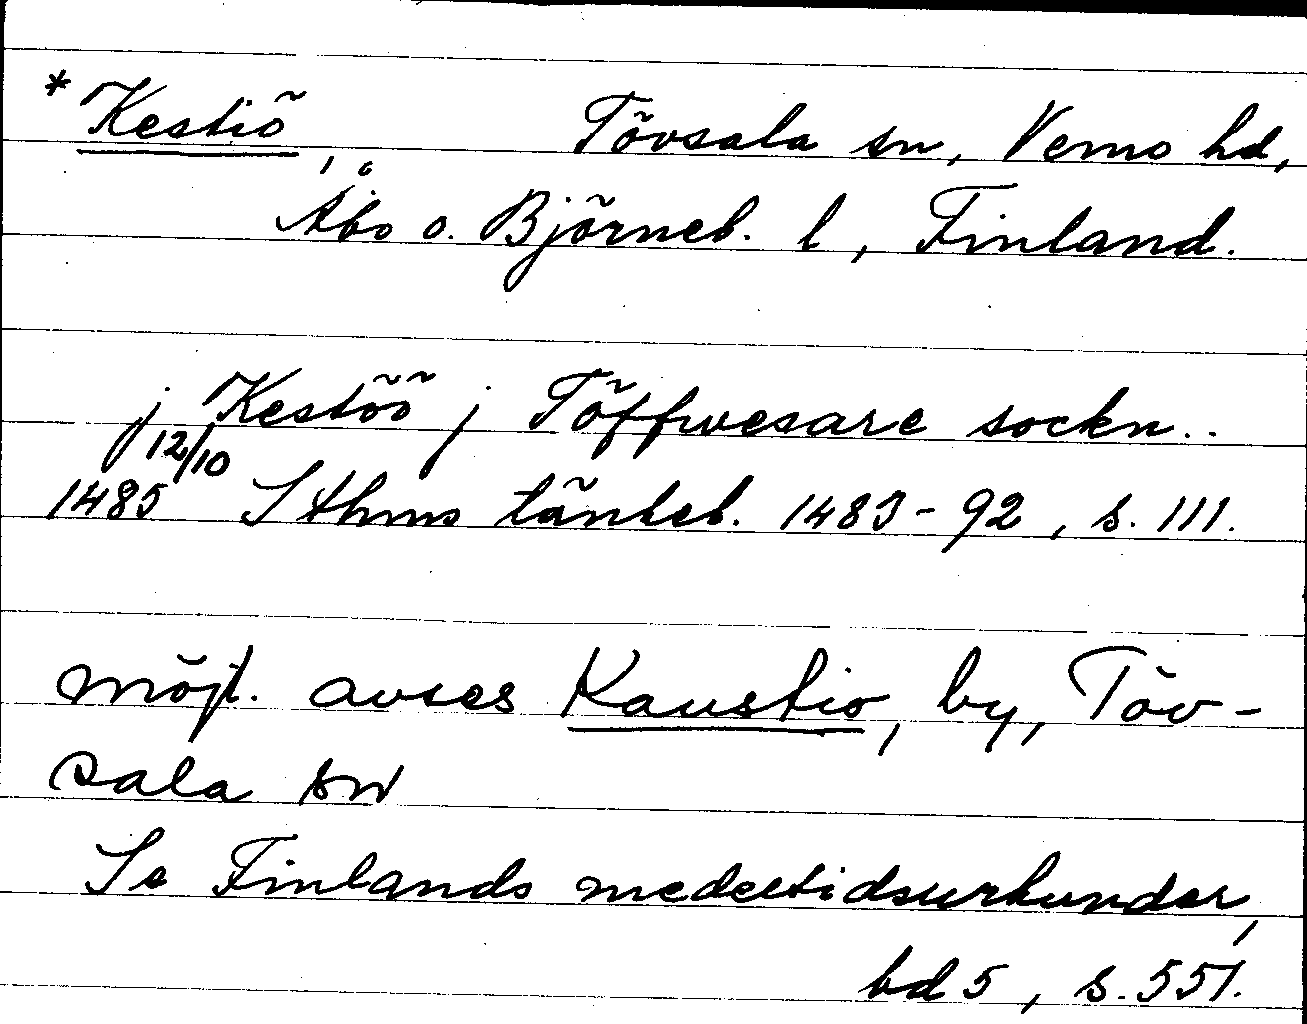 *Kestiö, Tövsala sn, Vemo hd,
Åbo o. Björneb. l, Finland.
j Kestöö j Töffwesare sockn..
12/10
1485 Sthms tänkeb. 1483-92, s. 111.
möjl. avses Kaustio, by, Töv-
sala sn
Se Finlands medeltidsurkunder,
bd 5, s. 551.